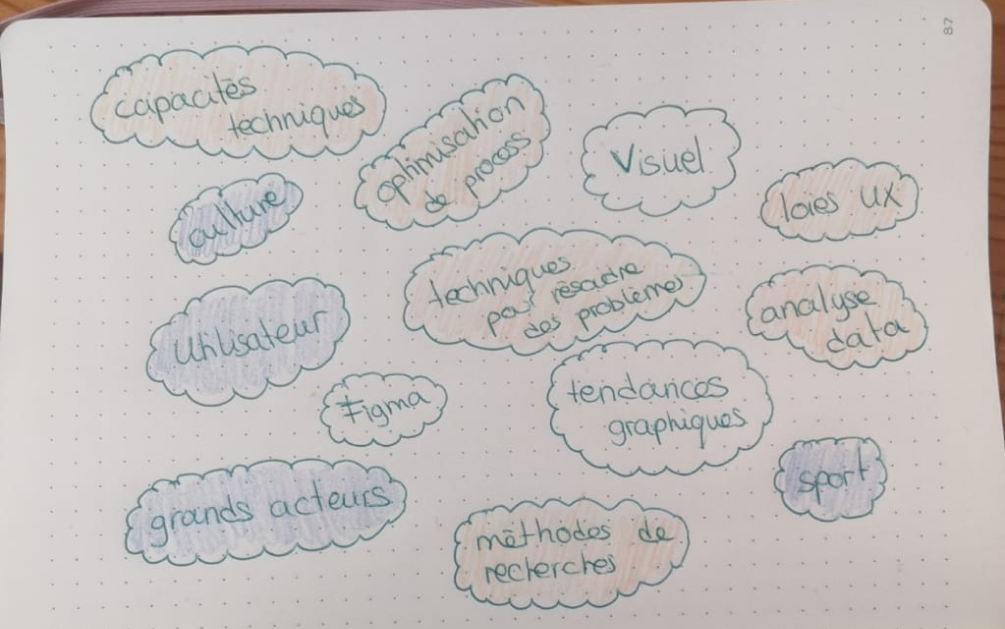 87
capacités
techniques
optimisation
de process
Visuel
culture
loies UX
techniques
pour résoudre
des problèmes
Utilisateur
analyse
data
Figma
tendances
graphiques
sport
grands acteurs
méthodes de
recherches